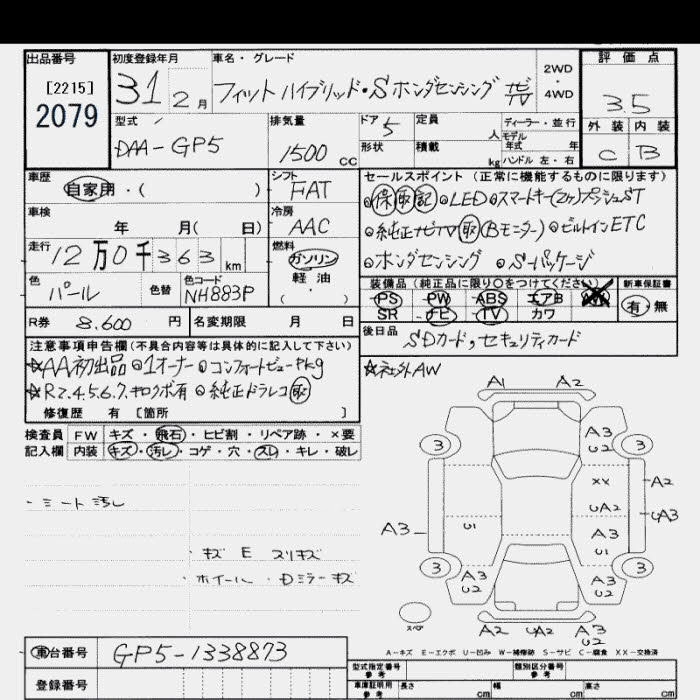 出品番号
[2215]
2079
初度登録年月
31 2月
車名・グレード
フィット ハイブリッド・S ホンダセンシング ナビTV
2WD
・
4WD
評価点
3.5
外装 内装
C B
型式
DAA-GP5
排気量
1500 CC
ドア 5
形状
定員 人
積載 kg
ディーラー・並行
モデル
年式 年
ハンドル 左・右
車歴
自家用・( )
シフト
FAT
車検
年 月( 日)
冷房
AAC
走行
12万0千363 km
燃料
ガソリン
軽油
( ・ )
色
パール
色替
色コード
NH883P
R券 8.600 円
名変期限 月 日
セールスポイント (正常に機能するものに限ります)
◎保取記 ◎LED◎スマートキー(2ヶ)プッシュST
◎純正ナビTV取(Bモニター) ◎ビルトインETC
◎ホンダセンシング ◎S-パッケージ
装備品 (純正品に限り○をつけてください)
PS PW ABS エアB AW
SR ナビ TV カワ
新車保証書
有・無
後日品
SDカード,セキュリティカード
☆社外AW
注意事項申告欄(不具合内容等は具体的に記入して下さい)
☆AA初出品 ◎1オーナー ◎コンフォートビューPkg
☆R2.4.5.6.7.キロクボ有 ◎純正ドラレコ取
修復歴 有 [箇所 ]
検査員 FW キズ・飛石・ヒビ割・リペア跡・×要
記入欄 内装 キズ・汚レ・コゲ・穴・スレ・キレ・破レ
・シート汚レ
・キズ E スリキズ
・ホイール・Dミラーキズ
A1 A2
3 A3 U2 3
XX A2
UA2 UA3
A3 U1 A3
U1
3 3
A3 U2 A3 U2
スペア
A2 UA2 A3 U2
A-キズ E-エクボ U-凹み W-補修跡 S-サビ C-腐食 XX-交換済
車台番号 GP5-1338873
登録番号
型式指定番号
参考
類別区分番号
参考
車庫証明用
参考
長さ cm 幅 cm 高さ cm